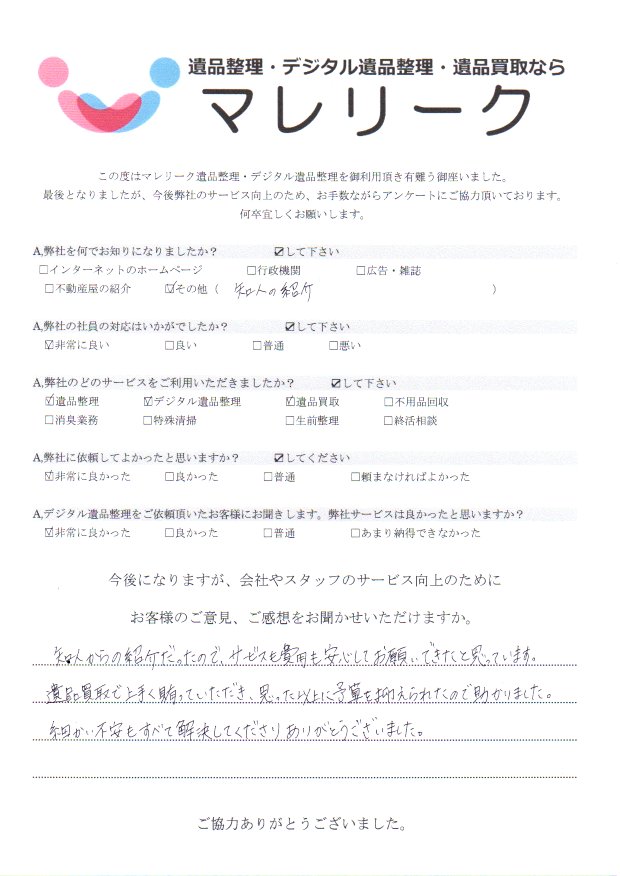 遺品整理・デジタル遺品整理・遺品買取なら
マレリーク
この度はマレリーク遺品整理・デジタル遺品整理を御利用頂き有難う御座いました。
最後となりましたが、今後弊社のサービス向上のため、お手数ながらアンケートにご協力頂いております。
何卒宜しくお願いします。
A,弊社を何でお知りになりましたか？ ☑して下さい
□インターネットのホームページ □行政機関 □広告・雑誌
□不動産屋の紹介 ☑その他（ 知人の紹介 ）
A,弊社の社員の対応はいかがでしたか？ ☑して下さい
☑非常に良い □良い □普通 □悪い
A,弊社のどのサービスをご利用いただきましたか？ ☑して下さい
☑遺品整理 ☑デジタル遺品整理 ☑遺品買取 □不用品回収
□消臭業務 □特殊清掃 □生前整理 □終活相談
A,弊社に依頼してよかったと思いますか？ ☑してください
☑非常に良かった □良かった □普通 □頼まなければよかった
A,デジタル遺品整理をご依頼頂いたお客様にお聞きします。弊社サービスは良かったと思いますか？
☑非常に良かった □良かった □普通 □あまり納得できなかった
今後になりますが、会社やスタッフのサービス向上のために
お客様のご意見、ご感想をお聞かせいただけますか。
知人からの紹介だったので、サービスも費用も安心してお願いできたと思っています。
遺品買取で上手く賄っていただき、思った以上に予算を抑えられたので助かりました。
細かい不安もすべて解決してくださりありがとうございました。
ご協力ありがとうございました。